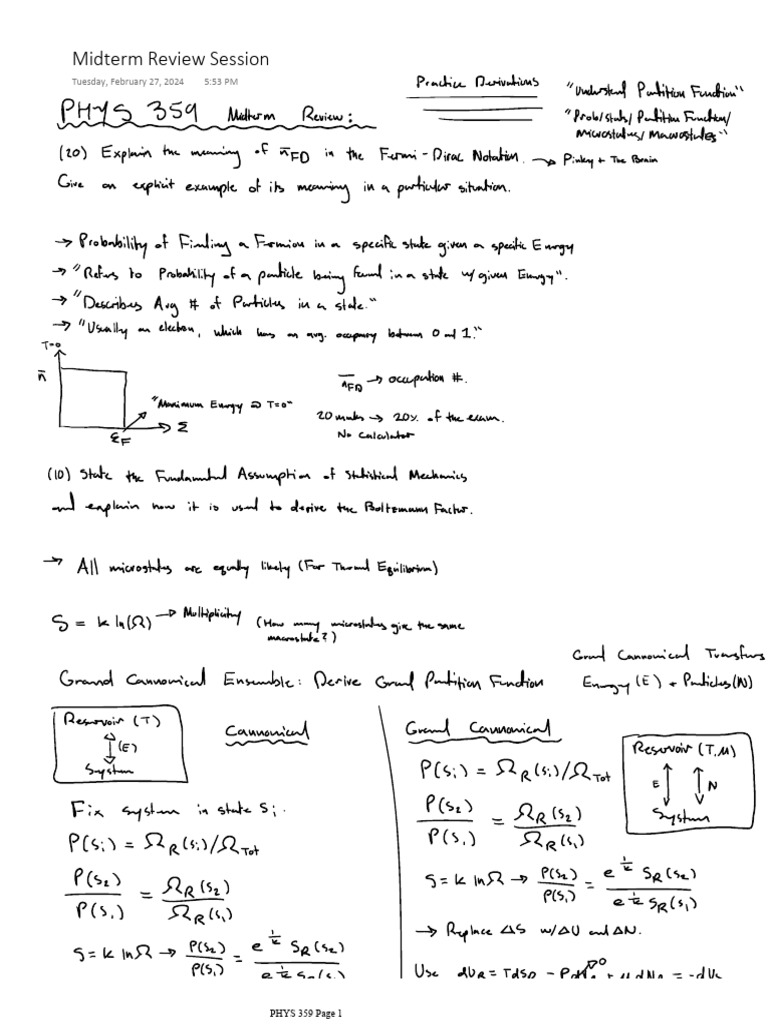 Midterm Review Session
Tuesday, February 27, 2024 5:53 PM
Practice Derivations
"Understand Partition Function"
"Prob/state/Partition Function/
Microstates/Macrostates"
PHYS 359 Midterm Review:
(20) Explain the meaning of n̄FD in the Fermi-Dirac Notation. → Pinky + The Brain
Give an explicit example of its meaning in a particular situation.
→ Probability of Finding a Fermion in a specific state given a specific Energy
→ "Refers to Probability of a particle being found in a state w/ given Energy".
→ "Describes Avg # of Particles in a state."
→ "Usually an electron, which has an avg. occupancy between 0 and 1."
T=0
n̄
"Maximum Energy @ T=0"
ε
εF
n̄FD → occupation #.
20 marks → 20% of the exam.
No Calculator
(10) State the Fundamental Assumption of Statistical Mechanics
and explain how it is used to derive the Boltzmann Factor.
→ All microstates are equally likely (For Thermal Equilibrium)
S = k ln(Ω) → Multiplicity (How many microstates give the same
macrostate?)
Grand Cannonical Transfers
Energy (E) + Particles (N)
Grand Cannonical Ensemble: Derive Grand Partition Function
Reservoir (T)
(E)
System
Cannonical
Fix system in state Si.
P(Si) = ΩR(Si)/ΩTot
P(S2)/P(S1) = ΩR(S2)/ΩR(S1)
S = k lnΩ → P(S2)/P(S1) = e^(1/k) SR(S2)/e^(1/k) SR(S1)
Grand Cannonical
Reservoir (T,M)
E N
System
P(Si) = ΩR(Si)/ΩTot
P(S2)/P(S1) = ΩR(S2)/ΩR(S1)
S = k lnΩ → P(S2)/P(S1) = e^(1/k) SR(S2)/e^(1/k) SR(S1)
→ Replace ΔS w/ΔU and ΔN.
Use dUR = TdSR - PdVR + μdNR = -dUs
PHYS 359 Page 1